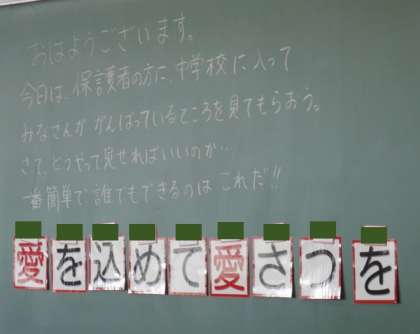 おはようございます。
今日は、保護者の方に、中学校に入って
みなさんが がんばっているところを見てもらおう。
さて、どうやって見せればいいのか…
一番簡単で誰でもできるのは これだ!!
愛を込めて愛さつを